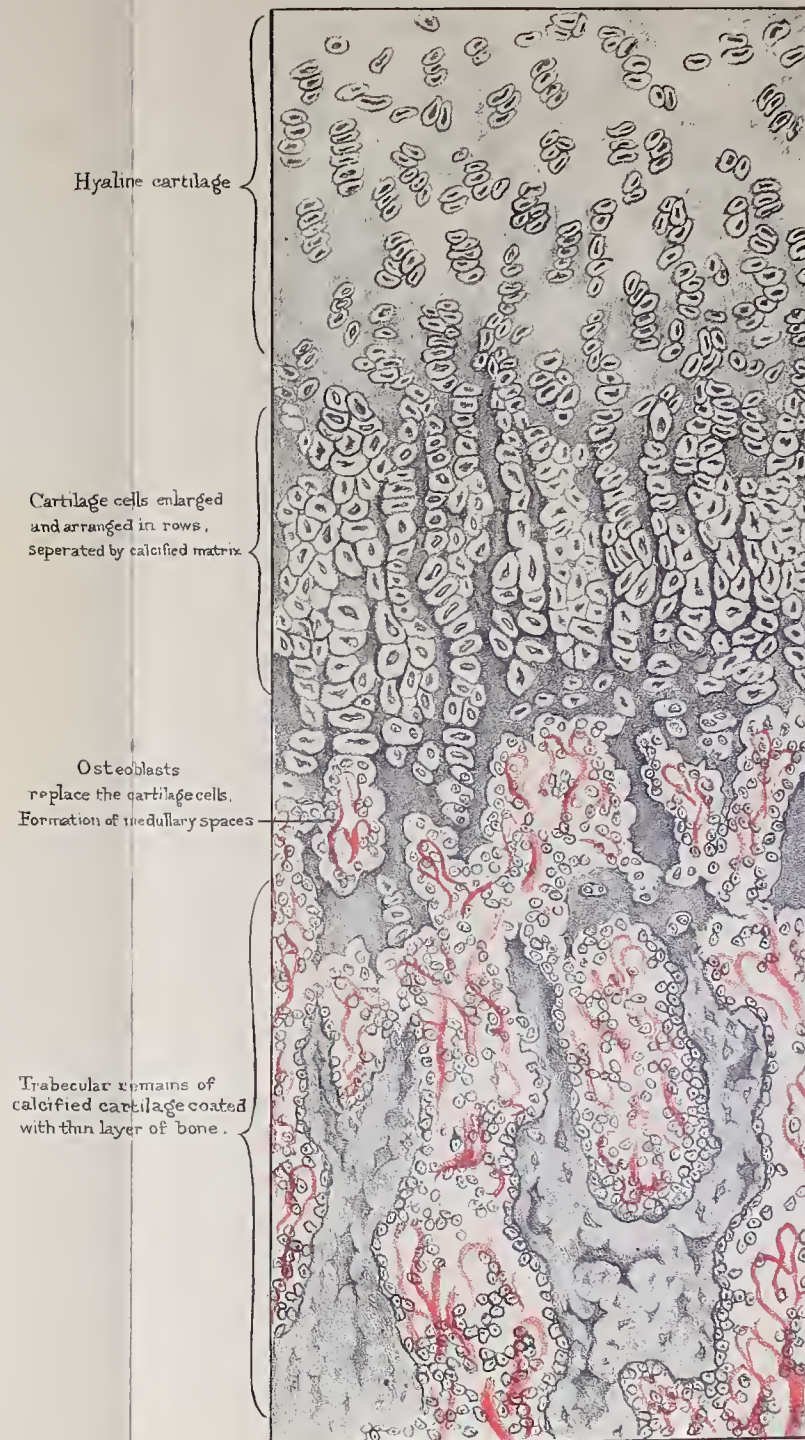 Hyaline cartilage
Cartilage cells enlarged
and arranged in rows,
seperated by calcified matrix
Osteoblasts
replace the cartilage cells.
Formation of medullary spaces
Trabecular remains of
calcified cartilage coated
with thin layer of bone.